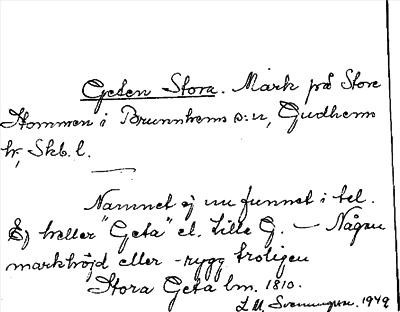 Geten Stora. Mark på Store
Stommen i Brunnhems s:n, Gudhems
hr, Skb. l.
Namnet ej nu funnet i bel.
Ej heller "Geta" el. Lille G. — Någon
markhöjd eller -rygg troligen
Stora Geta lm. 1810.
L. M. Svenungsson. 1949